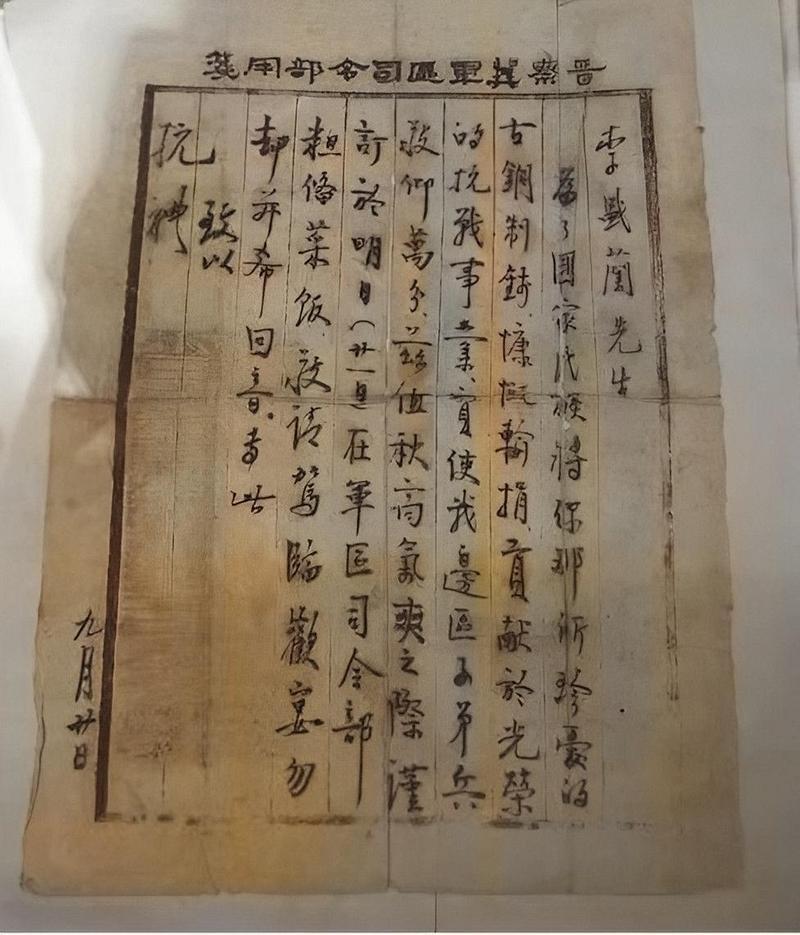 晉察冀軍區司令部用箋
李盛蘭先生
為了國家民族將你那所珍愛的
古銅制錢、慷慨輸捐、貢献於光榮
的抗戰事業、實使我邊區子弟兵
敬仰萬分、茲值秋高氣爽之際謹
訂於明日（廿一日）在軍區司令部
粗俻菜飯、敬請駕臨歡宴勿
却并希回音。專此
致以
抗禮
九月廿日